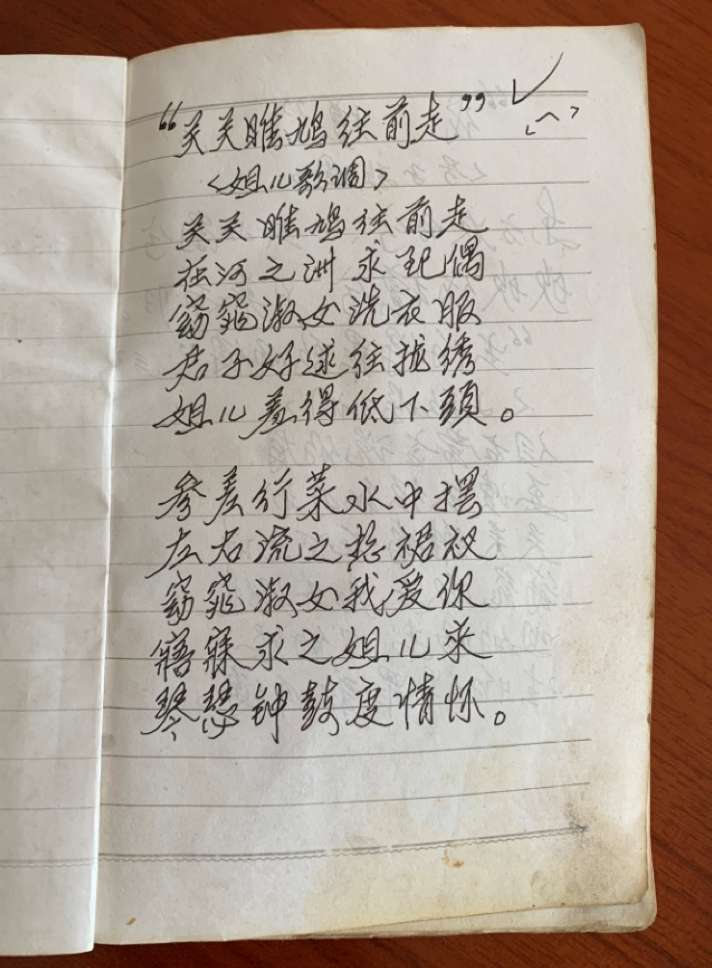 “关关雎鸠往前走”
<姐儿歌调>
关关雎鸠往前走
在河之洲求配偶
窈窕淑女洗衣服
君子好逑往拢绣
姐儿羞得低下頭。
参差荇菜水中摆
左右流之抢裙衩
窈窕淑女我爱你
寤寐求之姐儿来
琴瑟钟鼓度情怀。